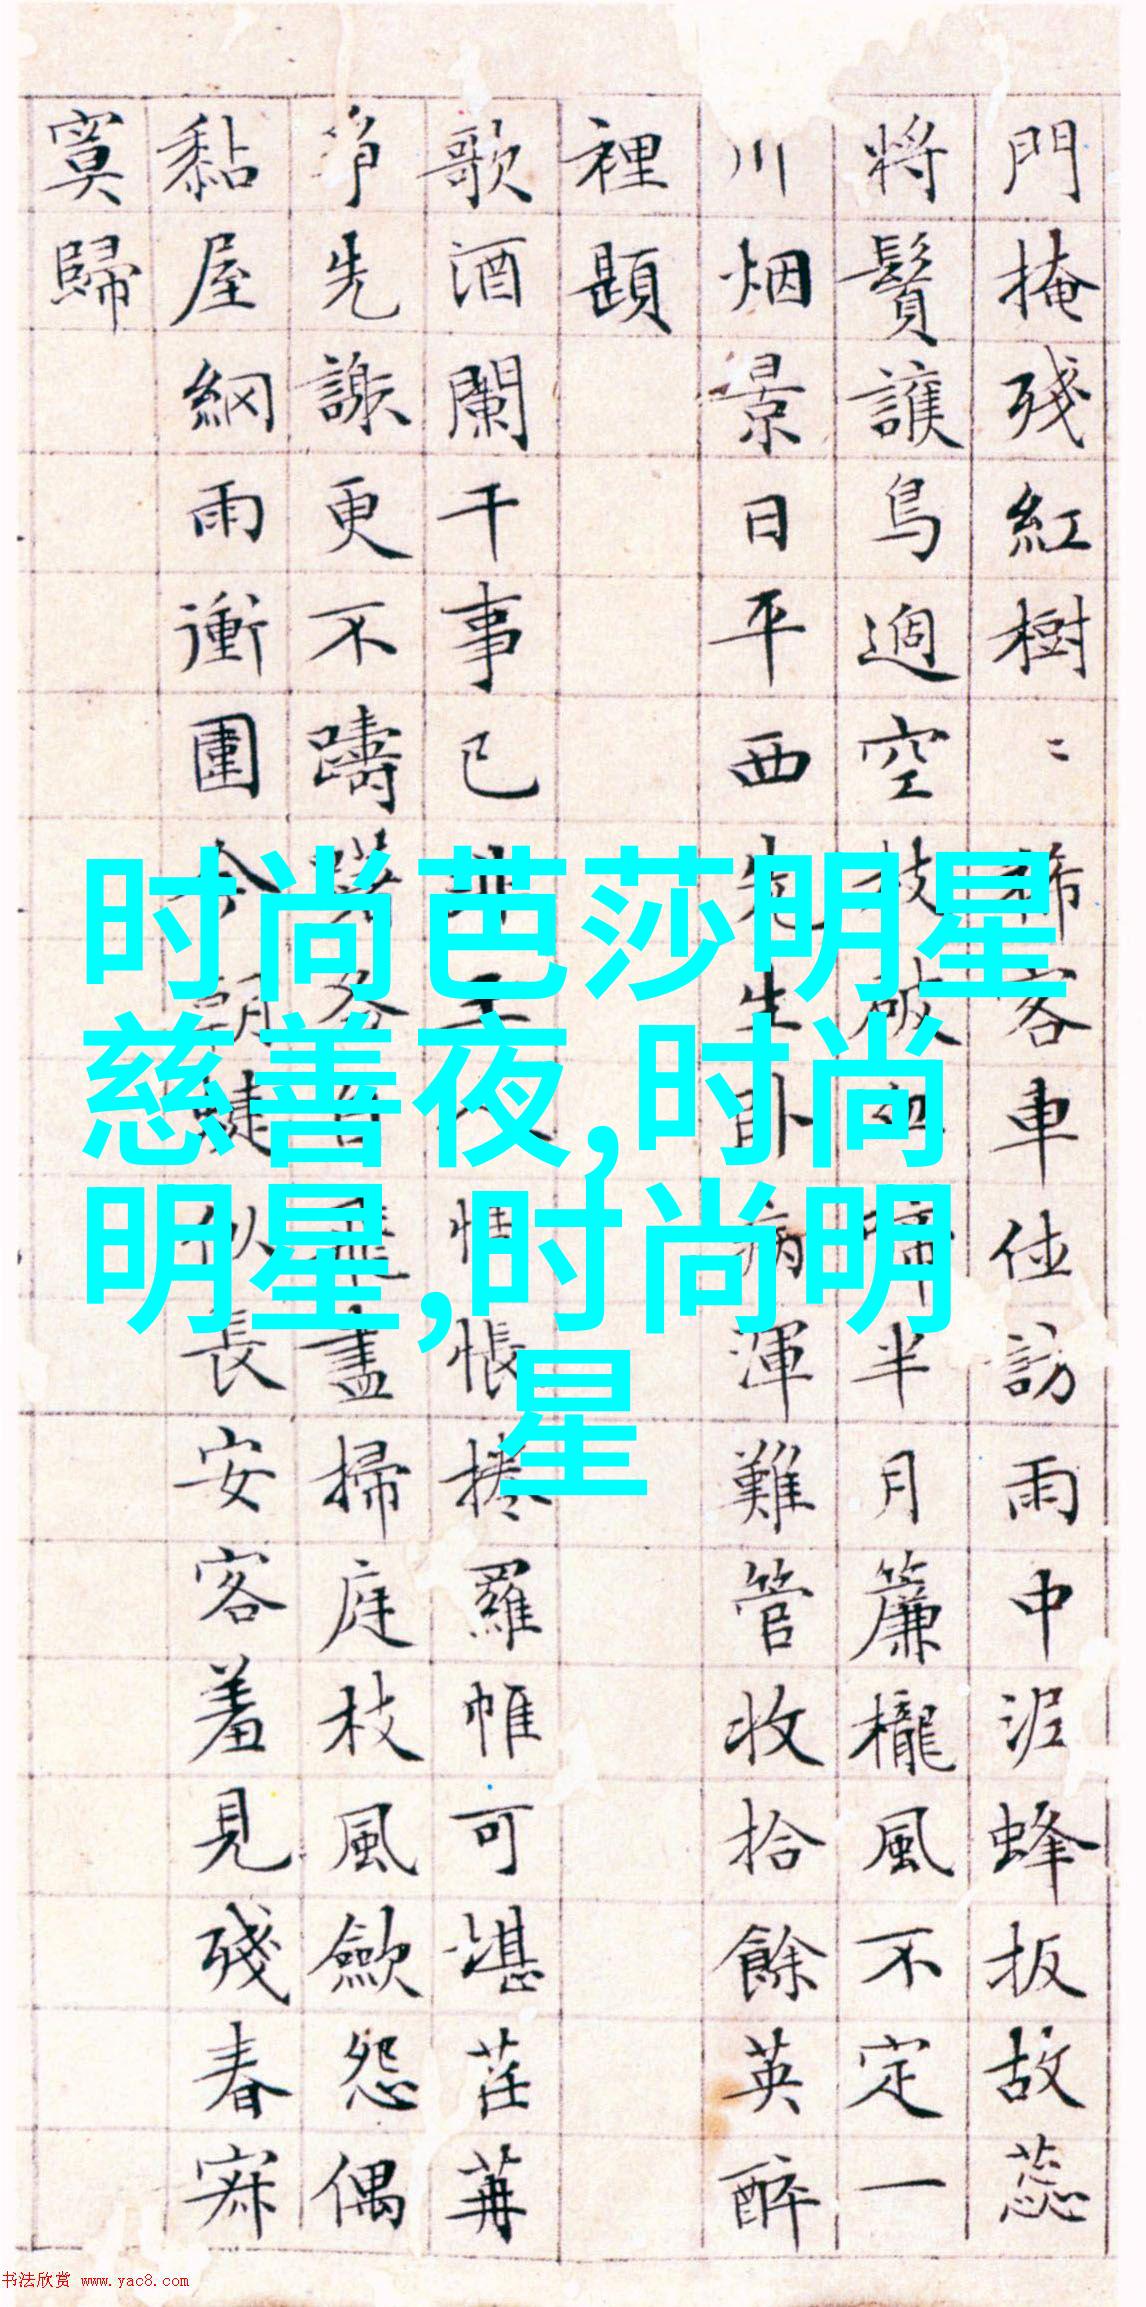 門掩殘紅樹〻稀客車伍訪雨中泥蜂扳故蕊
將鬢護鳥過空枝破啼半月簾櫳風不定一
川烟景日平西先生卧病渾難管收拾餘英醉
裡題
歌酒闌干事已惜悵捲羅帷可堪茌苒
爭先謝更不躊飛盡掃庭枝風歛怨偶
黏屋網雨衝圍似長安客羞見殘春寂
寞歸
时尚芭莎明星
慈善夜,时尚
明星,时尚明
星
书法欣赏 www.yac8.com